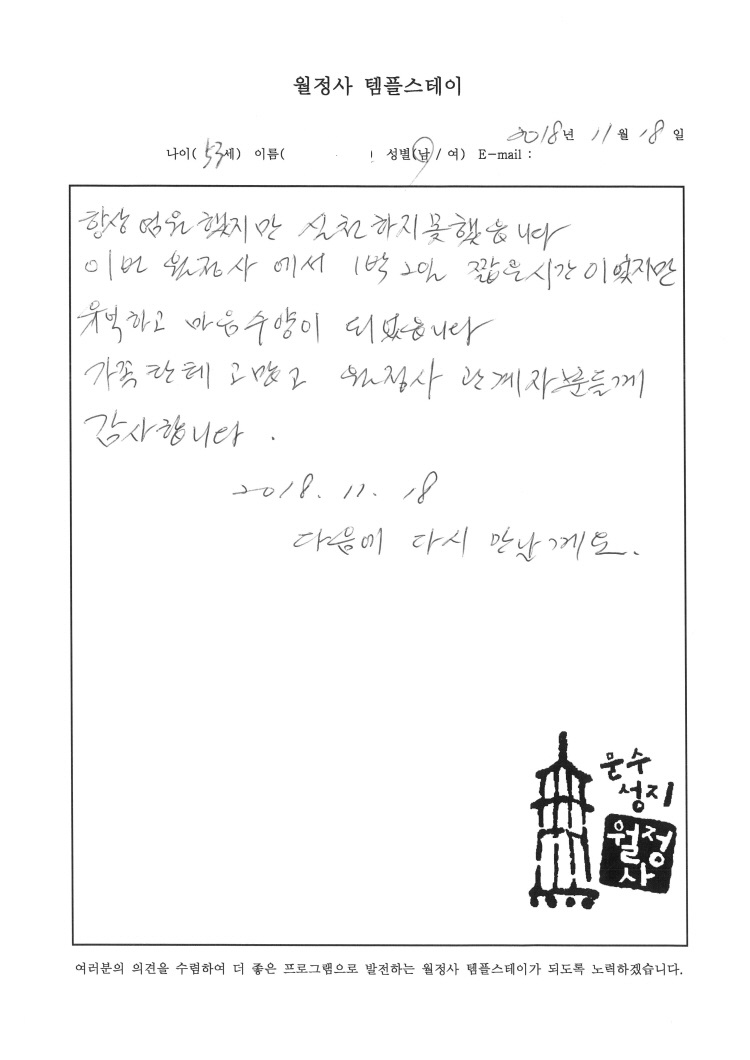 월정사 템플스테이
2018년 11월 18일
나이( 53세) 이름( ) 성별(남 / 여) E-mail :
항상 염원 했지만 실천 하지 못했습니다
이번 월정사 에서 1박 2일 짧은시간 이였지만
유익하고 마음수양이 되였습니다
가족 한테 고맙고 월정사 관계자분들께
감사합니다 .
2018. 11. 18
다음에 다시 만날께요.
문수
성지
월정
사
여러분의 의견을 수렴하여 더 좋은 프로그램으로 발전하는 월정사 템플스테이가 되도록 노력하겠습니다.